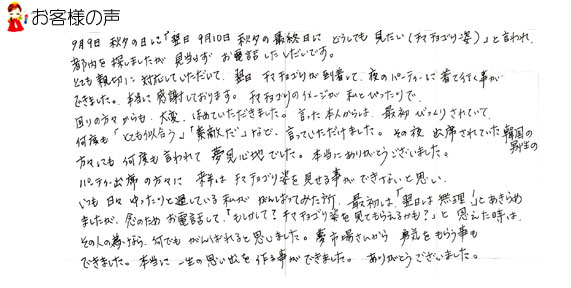 お客様の声
9月9日 秋夕の日に「翌日 9月10日 秋夕の最終日に どうしても 見たい(チマチョゴリ姿)」と言われ、
都内を探しましたが 見当はず お電話したしだいです。
とても親切に 対応していただいて、翌日 チマチョゴリが到着して、夜のパーティーに着て行く事が
できました。本当に感謝しております。チマチョゴリのイメージが 私とぴったりで、
回りの方々からも、大変、ほめていただきました。言った本人からは、最初 びっくりされていて
何度も「とても似合う」「素敵だ」など、言っていただけました。その夜 出席されていた 韓国の男性の
方々にも 何度も言われて 夢見心地でした。本当にありがとうございました。
パーティー出席の方々に チマチョゴリ姿を見せる事が できないと思い、
いつも 日々 ゆったりと過している 私が がんばってみた所、最初は、「翌日は無理」とあきらめ
ましたが、念のため お電話して、「もしかして?チマチョゴリ姿を 見てもらえるかも?」と 思えた時は、
その人の為なら、何でも がんばれると思いました。夢市場さんから 勇気をもらう事も
できました。本当に 一生の思い出を作る事ができました。 ありがとうございました。